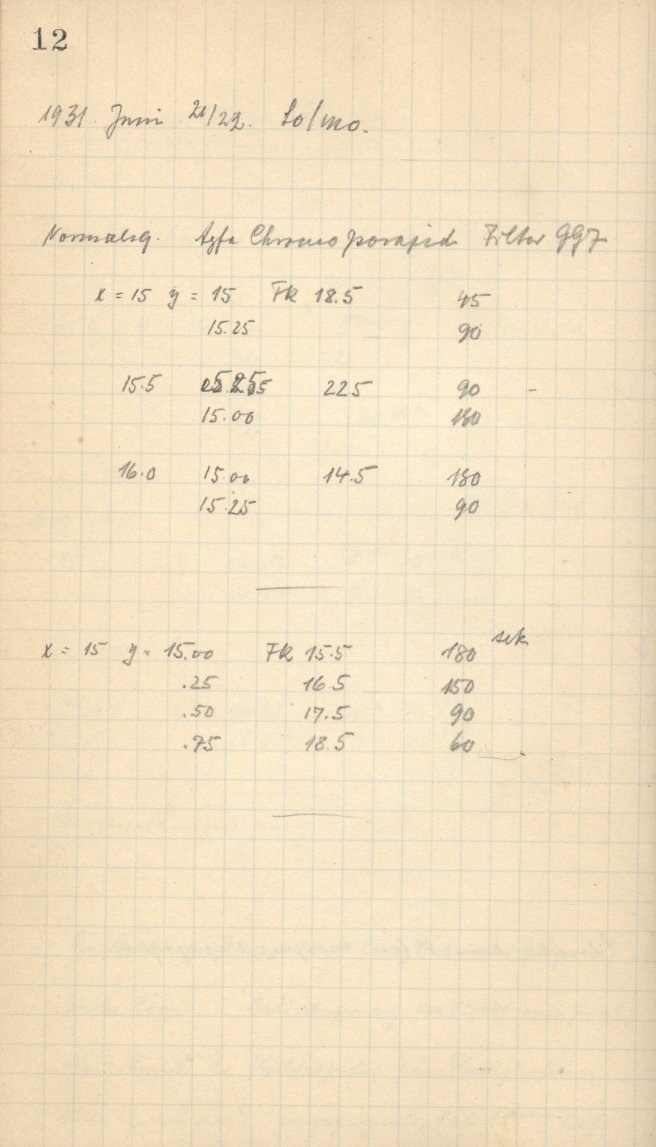 12
1931. Juni 21/22. So/Mo.
Normalsq. Agfa Chromo Isorapid Filter GG7
x = 15 y = 15 FK 18.5 45
15.25 90
15.5 22.5 90 -
15.00 180
16.0 15.00 14.5 180
15.25 90
x = 15 y = 15.00 FK 15.5 180 sek
.25 16.5 150
.50 17.5 90
.75 18.5 60